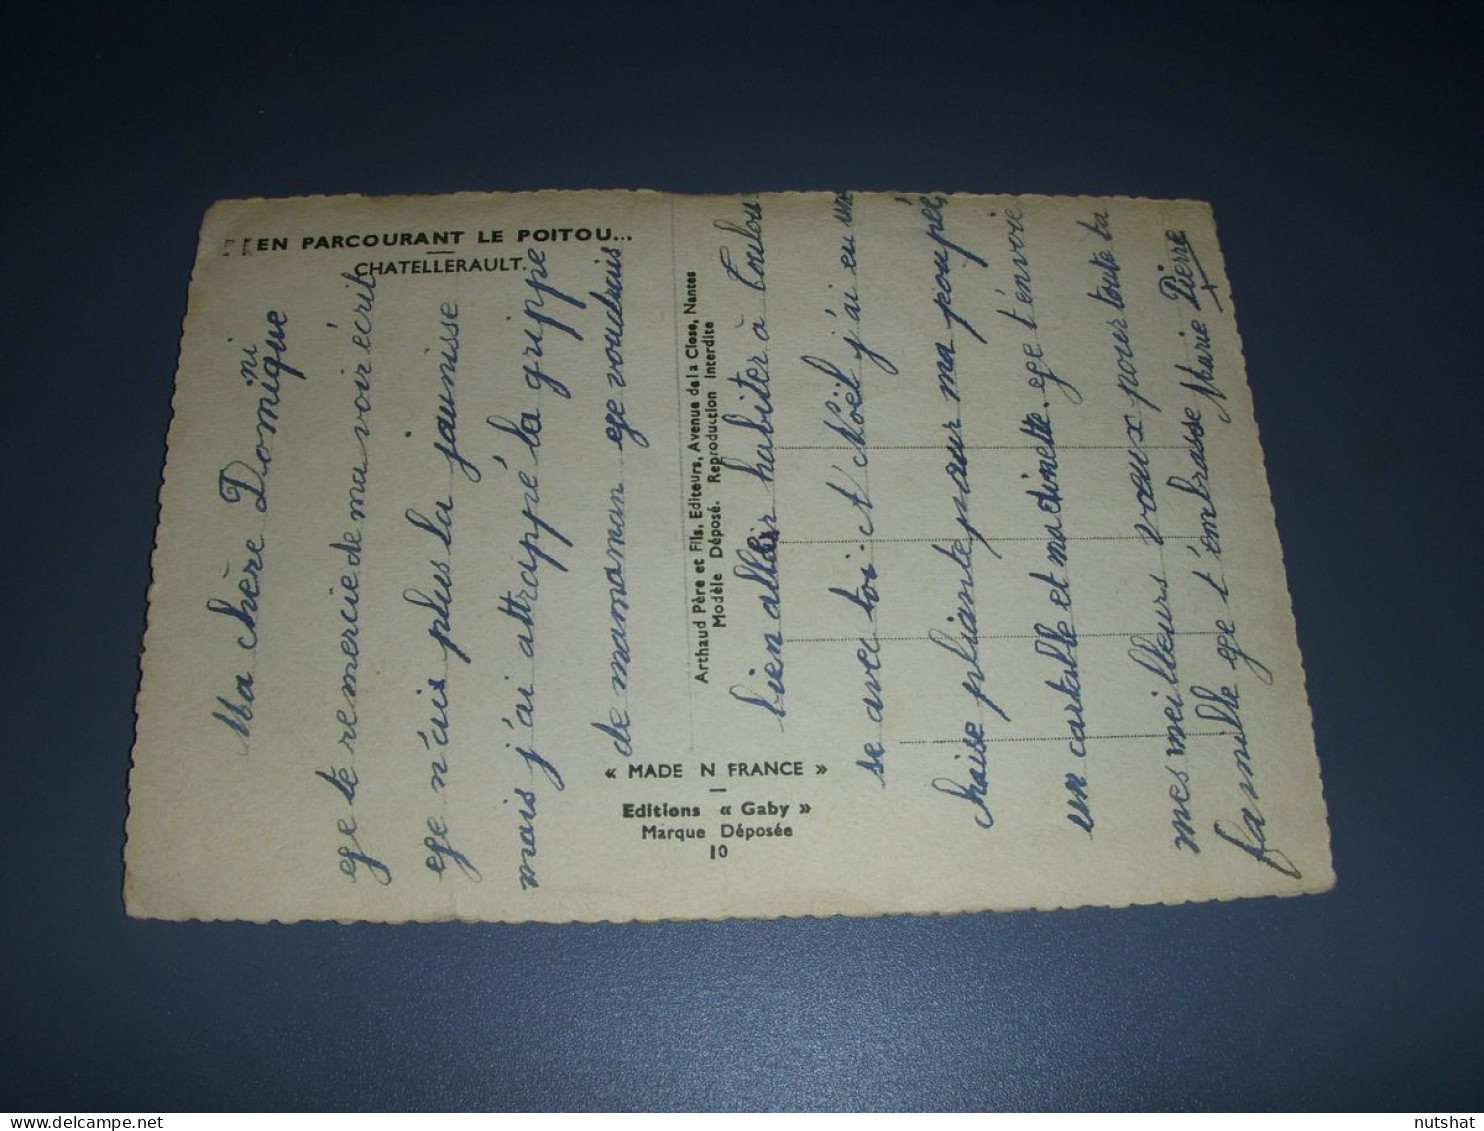 EN PARCOURANT LE POITOU...
CHATELLERAULT.
Ma chère Dominique
ni
ge te remercie de ma voir écrit
ge n'ais plus la jaunisse
mais j'ai attrappé la grippe
de maman ge voudrais
Arthaud Père et Fils, Editeurs, Avenue de la Close, Nantes
Modèle Déposé. Reproduction Interdite
« MADE N FRANCE »
Editions « Gaby »
Marque Déposée
10
bien allèr habiter à Toulou
se avec toi. A Noël j'ai eu une
chaise pliante pour ma poupée,
un cartable et ma dinette. ge t'envoie
mes meilleurs vœux pour toute ta
famille ge t'embrasse Marie Pierre
nutshat